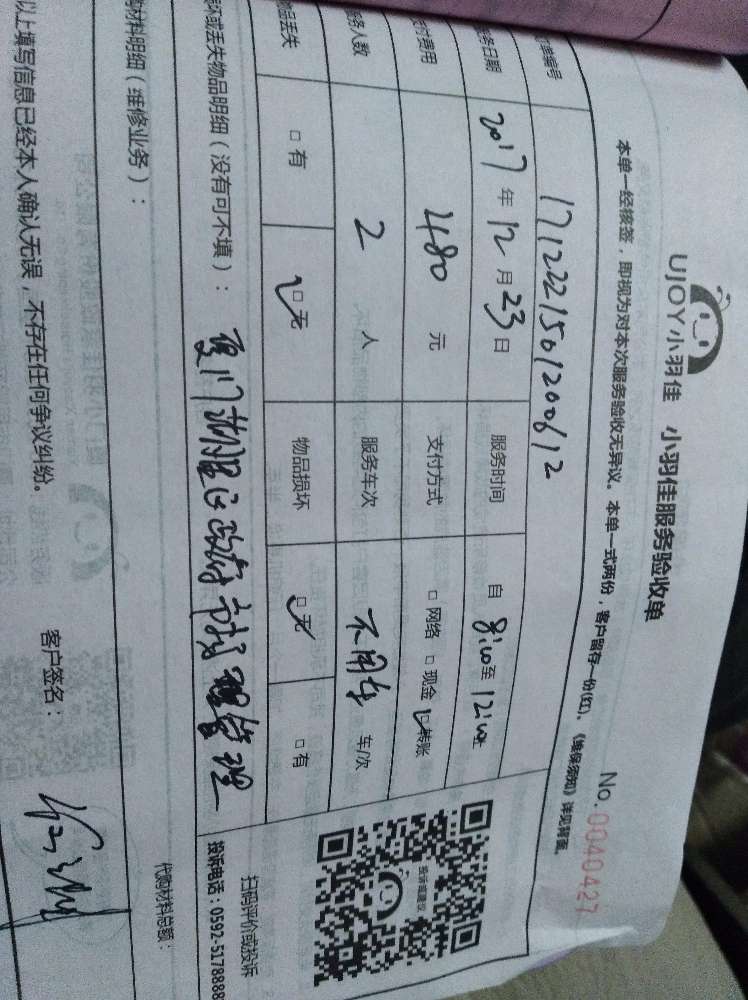 UJOY小羽佳 小羽佳服务验收单
No.0040427
本单一经核签，即视为对本次服务验收无异议。本单一式两份，客户留存一份(红)、《维保须知》详见背面。
单编号 1712221501200612
务日期 2017年12月23日 服务时间 自8:00至12:00止
付费用 480元 支付方式 □网络 □现金 □转账
务人数 2人 服务车次 不用车 车/次
物品丢失 □有 □无 物品损坏 □无 □有
坏或丢失物品明细（没有可不填）：
厦门湖里区政府
管理
扫码评价或投诉
投诉电话：0592-5178888
投诉或建议
购材料明细（维修业务）：
代购材料总额：
以上填写信息已经本人确认无误，不存在任何争议纠纷。
客户签名：